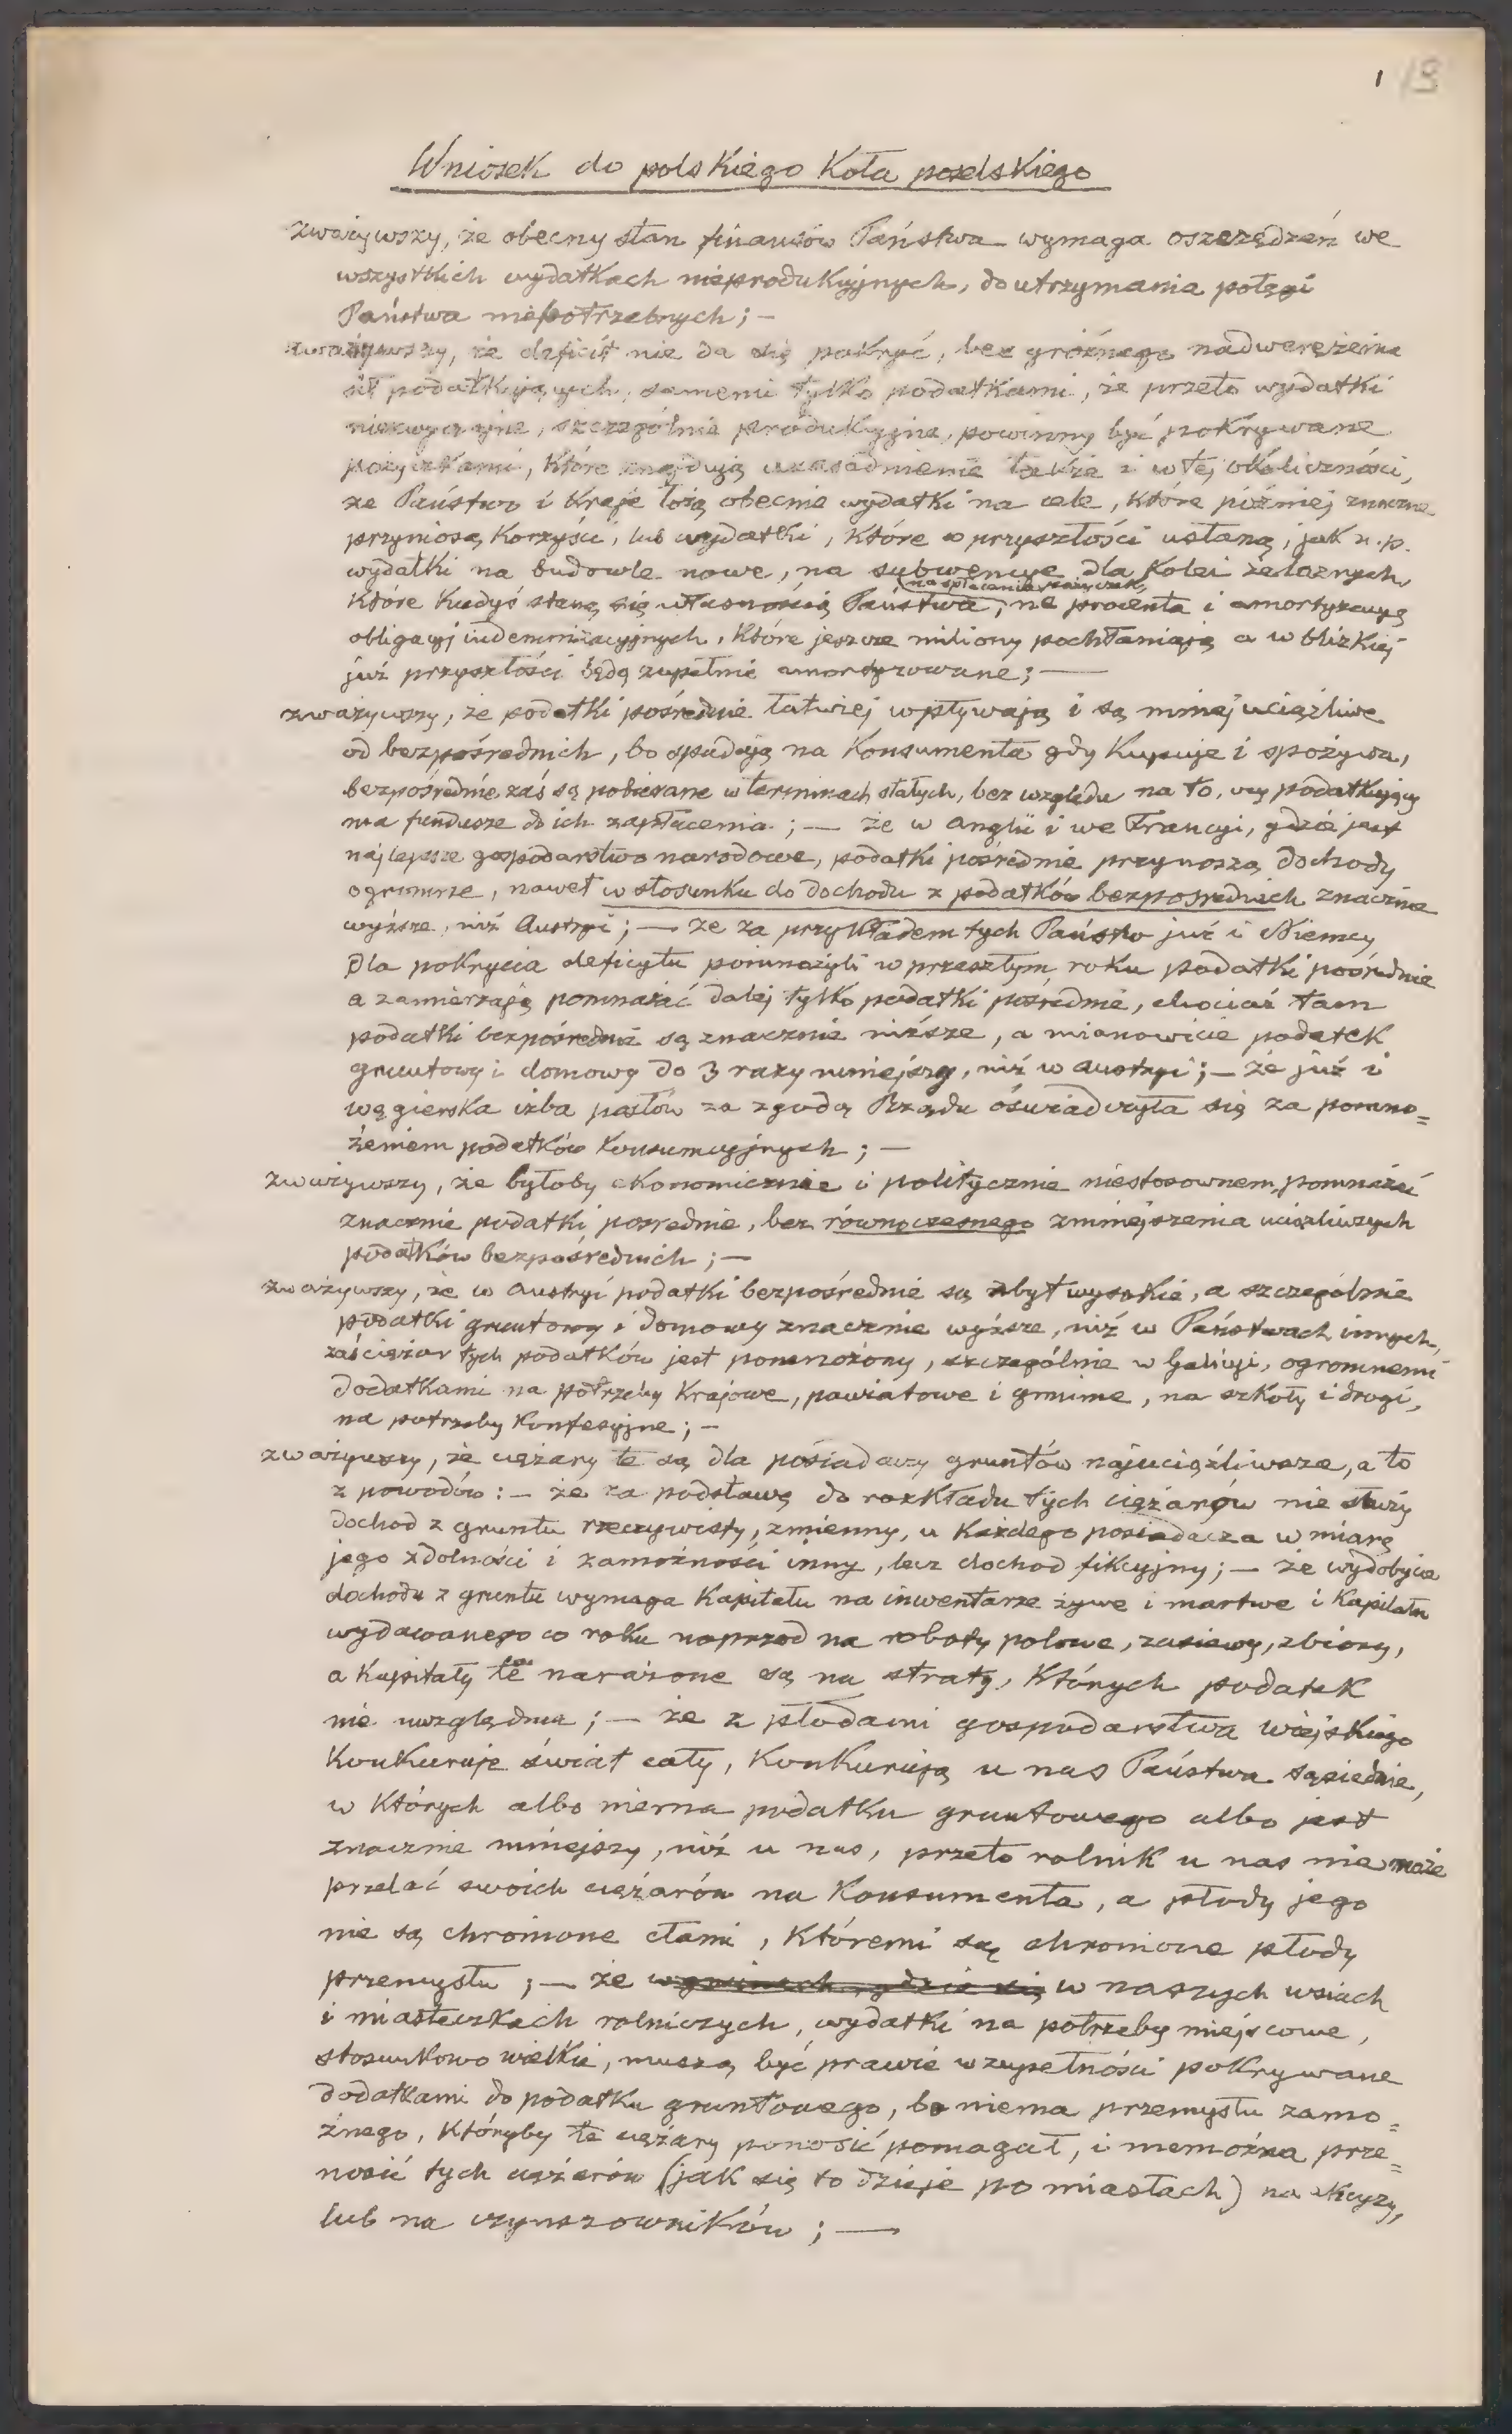 1 13
Wniosek do polskiego Koła poselskiego
zważywszy, że obecny stan finansów Państwa wymaga oszczędzeń we
wszystkich wydatkach nieprodukcyjnych, do utrzymania potęgi
Państwa niepotrzebnych; —
zważywszy, że deficit nie da się pokryć, bez groźnego nadwerężenia
sił podatkujących, samemi tylko podatkami, że przeto wydatki
niezwyczajne, szczególnie produkcyjne, powinny być pokrywane
pożyczkami, które znajdują uzasadnienie także i w tej okoliczności,
że Państwo i Kraje łożą obecnie wydatki na cele, które później znaczne
przyniosą Korzyści, lub wydatki, które w przyszłości ustaną, jak n.p.
wydatki na budowle nowe, na subwencye dla Kolei żelaznych,
na spłacenie pożyczek,
które kiedyś staną się własnością Państwa, na procenta i amortyzacyą
obligacyj indemnizacyjnych, które jeszcze miliony pochłaniają a w blizkiej
już przyszłości będą zupełnie amortyzowane; —
zważywszy, że podatki pośrednie łatwiej wpływają i są mniej uciążliwe
od bezpośrednich, bo spadają na Konsumenta gdy Kupuje i spożywa,
bezpośrednie zaś są pobierane w terminach stałych, bez względu na to, czy podatkujący
ma fundusze do ich zapłacenia; — że w Anglii i we Francyi, gdzie jest
najlepsze gospodarstwo narodowe, podatki pośrednie przynoszą dochody
ogromne, nawet w stosunku do dochodu z podatków bezpośrednich znacznie
wyższe, niż Austryi; — że za przykładem tych Państw już i Niemcy
dla pokrycia deficytu pomnożyli w przeszłym roku podatki pośrednie
a zamierzają pomnażać dalej tylko podatki pośrednie, chociaż tam
podatki bezpośrednie są znacznie niższe, a mianowicie podatek
gruntowy i domowy do 3 razy mniejszy, niż w Austryi; — że już i
węgierska izba posłów za zgodą Rządu oświadczyła się za pomno=
żeniem podatków Konsumcyjnych; —
zważywszy, że byłoby ekonomicznie i politycznie niestosownem, pomnażać
znacznie podatki pośrednie, bez równoczesnego zmniejszenia uciążliwszych
podatków bezpośrednich; —
zważywszy, że w Austryi podatki bezpośrednie są zbyt wysokie, a szczególnie
podatki gruntowy i domowy znacznie wyższe, niż w Państwach innych,
zaś ciężar tych podatków jest pomnożony, szczególnie w Galicyi, ogromnemi
dodatkami na potrzeby Krajowe, powiatowe i gminne, na szkoły i drogi,
na potrzeby Konfesyjne; —
zważywszy, że ciężary te są dla posiadaczy gruntów najuciążliwsze, a to
z powodów: — że za podstawę do rozkładu tych ciężarów nie służy
dochod z gruntu rzeczywisty, zmienny, u każdego posiadacza w miarę
jego zdolności i zamożności inny, lecz dochod fikcyjny; — że wydobycie
dochodu z gruntu wymaga Kapitału na inwentarze żywe i martwe i Kapitału
wydawanego co roku naprzod na roboty polowe, zasiewy, zbiory,
a Kapitały te narażone są na straty, których podatek
nie uwzględnia; — że z płodami gospodarstwa wiejskiego
Konkuruje świat cały, Konkurują u nas Państwa sąsiednie,
w których albo niema podatku gruntowego albo jest
znacznie mniejszy, niż u nas, przeto rolnik u nas nie może
przelać swoich ciężarów na Konsumenta, a płody jego
nie są chronione cłami, któremi są chronione płody
przemysłu; — że w gminach, gdzie się w naszych wsiach
i miasteczkach rolniczych, wydatki na potrzeby miejscowe,
stosunkowo wielkie, muszą być prawie w zupełności pokrywane
dodatkami do podatku gruntowego, bo niema przemysłu zamo=
żnego, któryby te ciężary ponosić pomagał, i niemożna prze=
nosić tych ciężarów (jak się to dzieje po miastach) na
lub na czynszowników; —